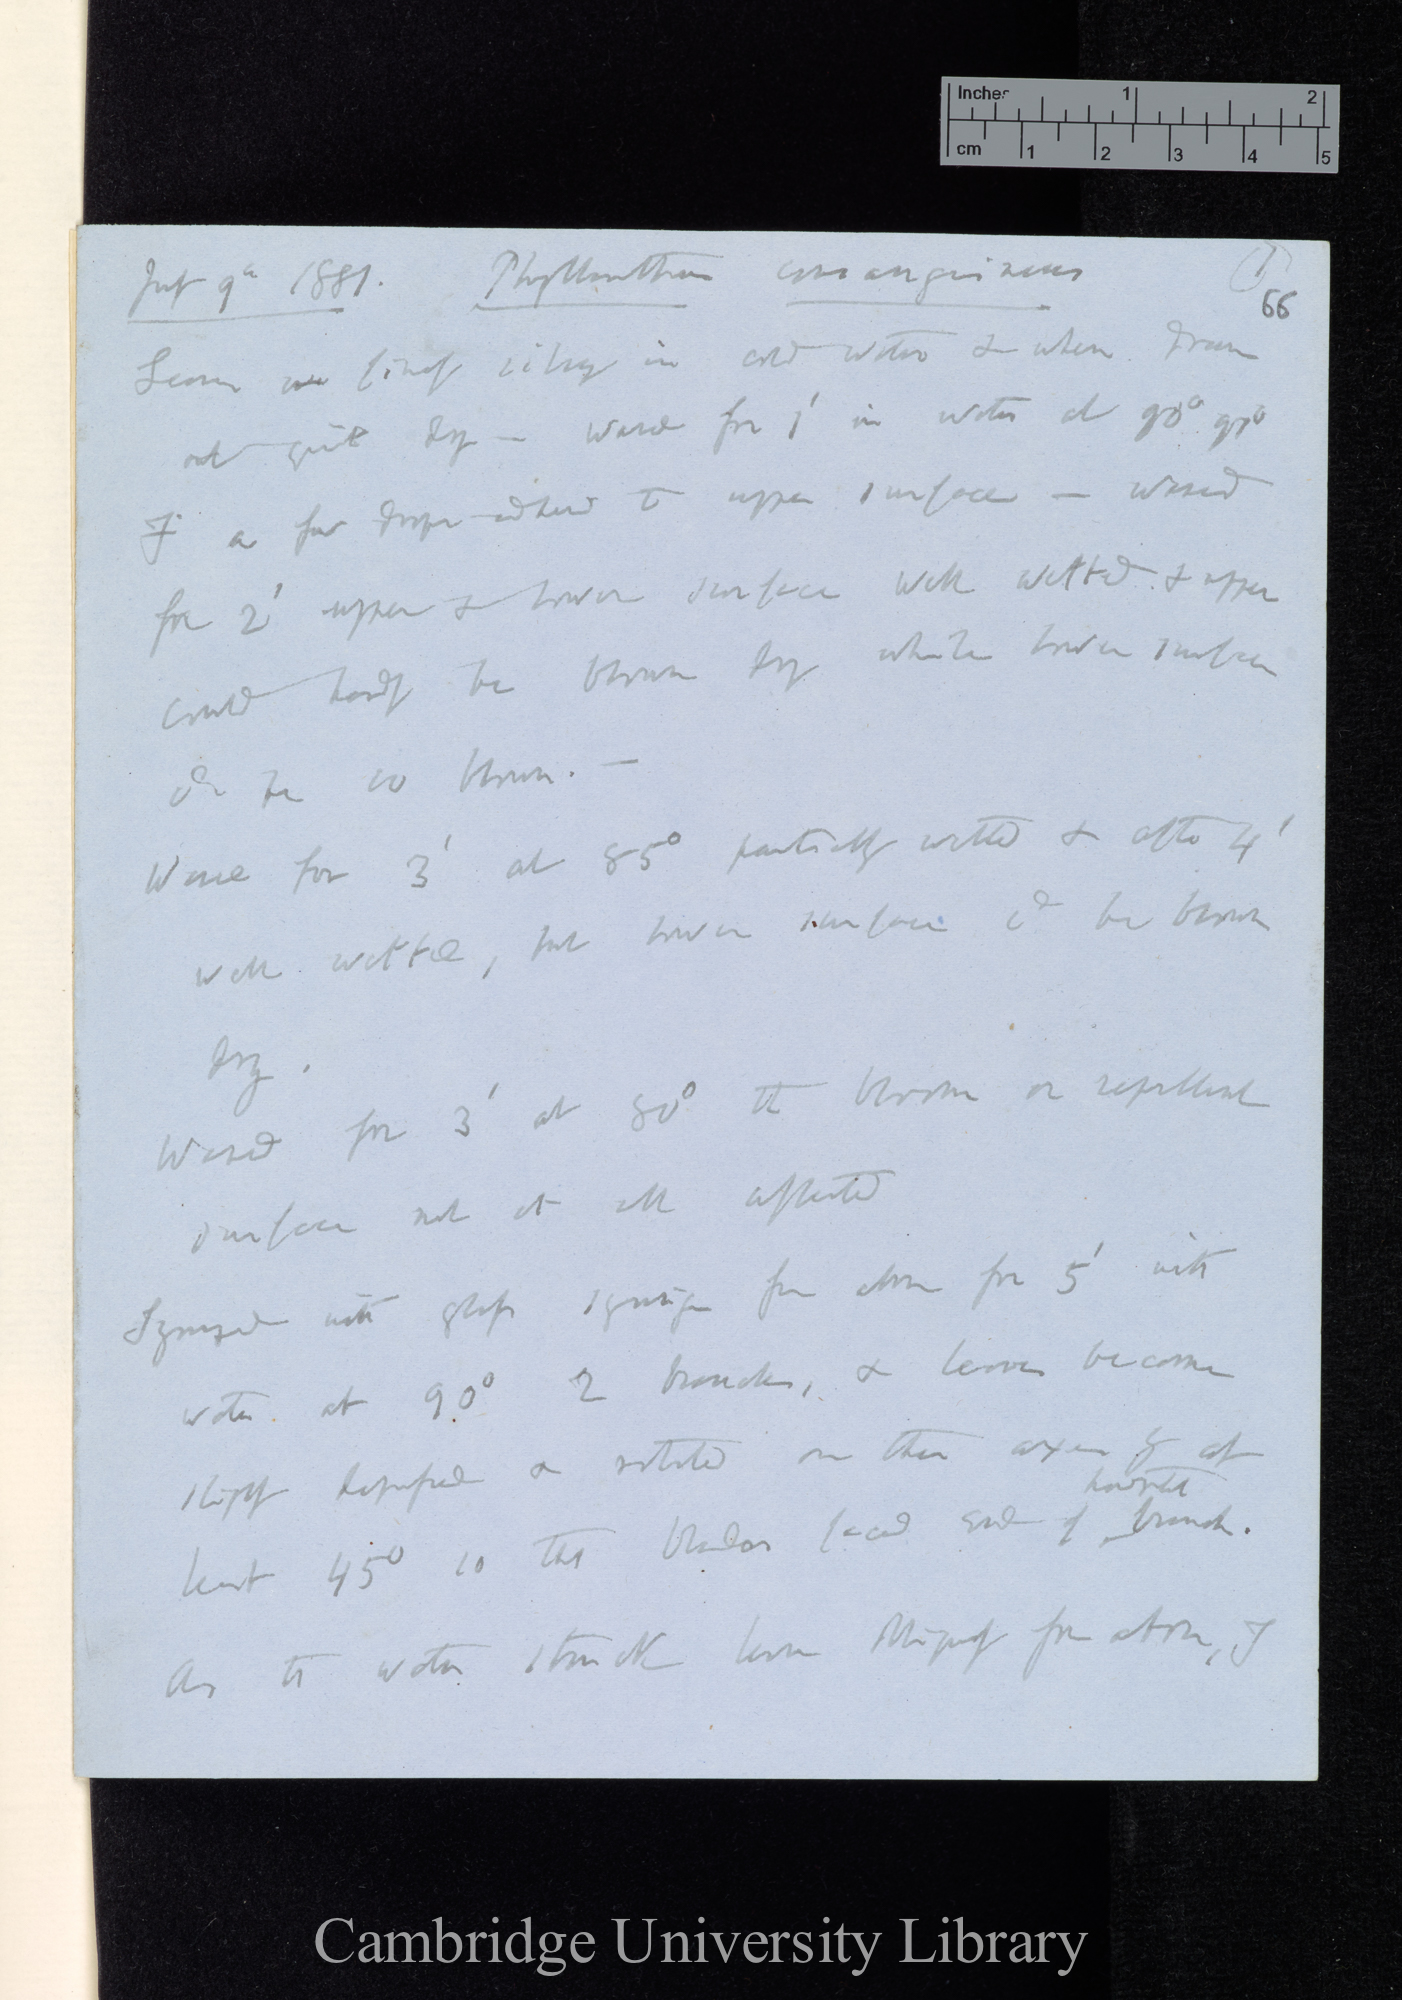 Inches 1 2
cm 1 2 3 4 5
(1)
July 9th 1881. Phyllanthus consanguineus
66
Leaves are silvery in cold water & when drawn
out quite dry — waved for 1' in water at 90°
a few drops adhered to upper surface — waved
for 2' upper & lower surface well wetted & upper
could hardly be blown dry while lower surface
cd be so blown. —
Wave for 3' at 85° partially wetted & after 4'
well wetted, but lower surface cd be blown
dry.
Waved for 3' at 80° the bloom or repellent
surface not at all affected
Syringed with glass syringe from above for 5' with
water at 90° 2 branches, & leaves become
slightly depressed & rotated on their axes by at
horizontal
least 45° so that blades faced end of branch.
As the water struck leaves obliquely from above, I
Cambridge University Library